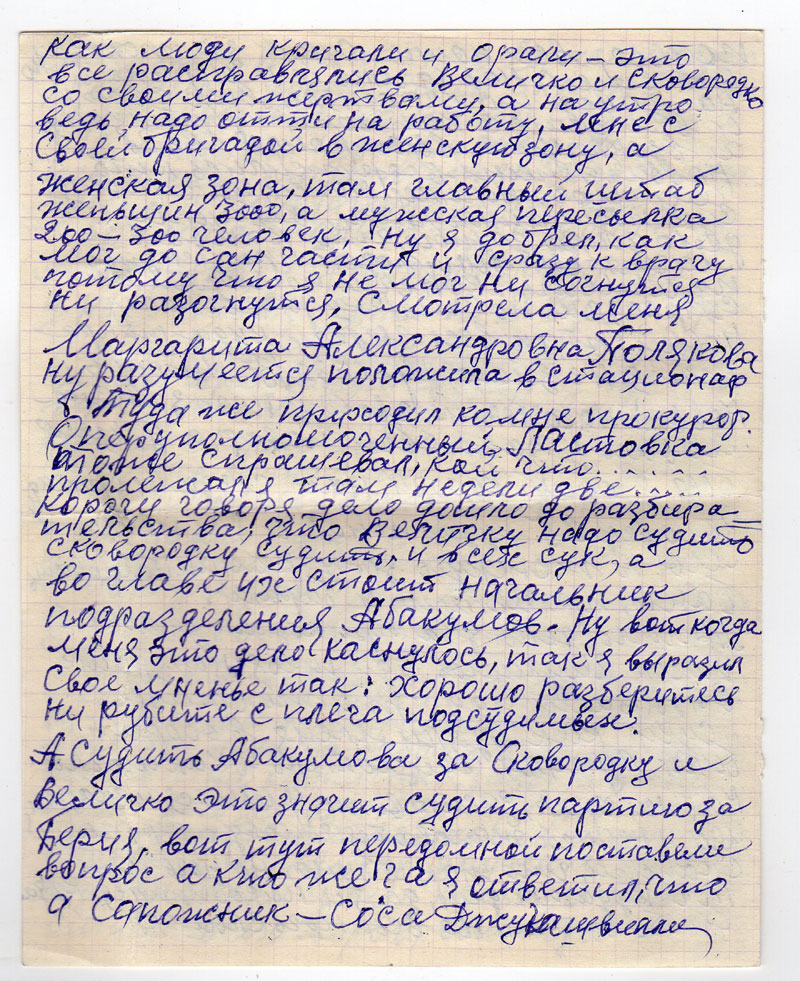 как люди кричали и орали – это
все расправлялись Величко и Сковородко
со своими жертвами, а на утро
ведь надо отти на работу, мне с
своей бригадой в женскую зону, а
женская зона, там главный штаб
женьщин 3000, а мужская пересылка
200 – 300 человек. Ну я добрел, как
мог до сан части и сразу к врачу
потому что я не мог ни согнутся
ни разогнутся, смотрела меня
Маргарита Александровна Полякова
ну разумеется положила в стационар
Туда же приходил комне прокурор.
Оперуполномоченный Ластовка
тоже спрашевал, кой что......
пролежал я там недели две.....
Корочи говоря дело дошло до разбира
тельства, что Величку надо судить
сковородку судить, и всех сук, а
во главе их стоит начальник
подразделения Абакумов. Ну вот когда
меня это дело каснулось, так я выразил
свое мненье так: хорошо разберитесь
ни рубите с плеча подсудимых.
А судить Абакумова за Сковородку и
Величко это значит судить партию за
Берия, вот тут передомной поставели
вопрос а кто же ты а я ответил, что
я сапожник – Соса Джугашвили